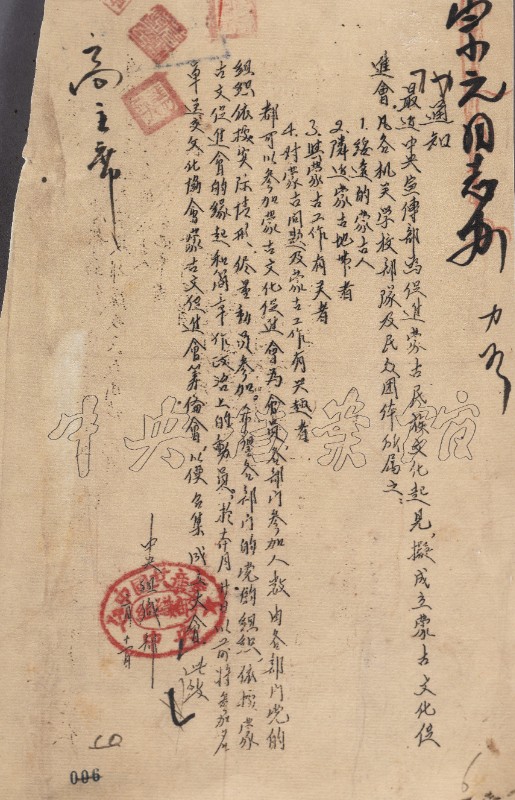 通知
最近中央宣传部为促進蒙古民族文化起見,擬成立蒙古文化促
進會凡各机关学校部隊及民众团体所属之:
1.綏遠的蒙古人
2.隣近蒙古地帶者
3.與蒙古工作有关者
4.对蒙古问題及蒙古工作有兴趣者
都可以参加蒙古文化促進會為會員,各部门参加人数由各部门党的
組织依據实际情形,侭量動員参加。希望各部门的党的組织,依據蒙
古文促進會的缘起和简章作政治上的動員。於本月 日以前将参加名
单送交文化協會蒙古文促進會筹備會,以便召集成立大會 此致
高主席
中央組織部
中央档案馆
006